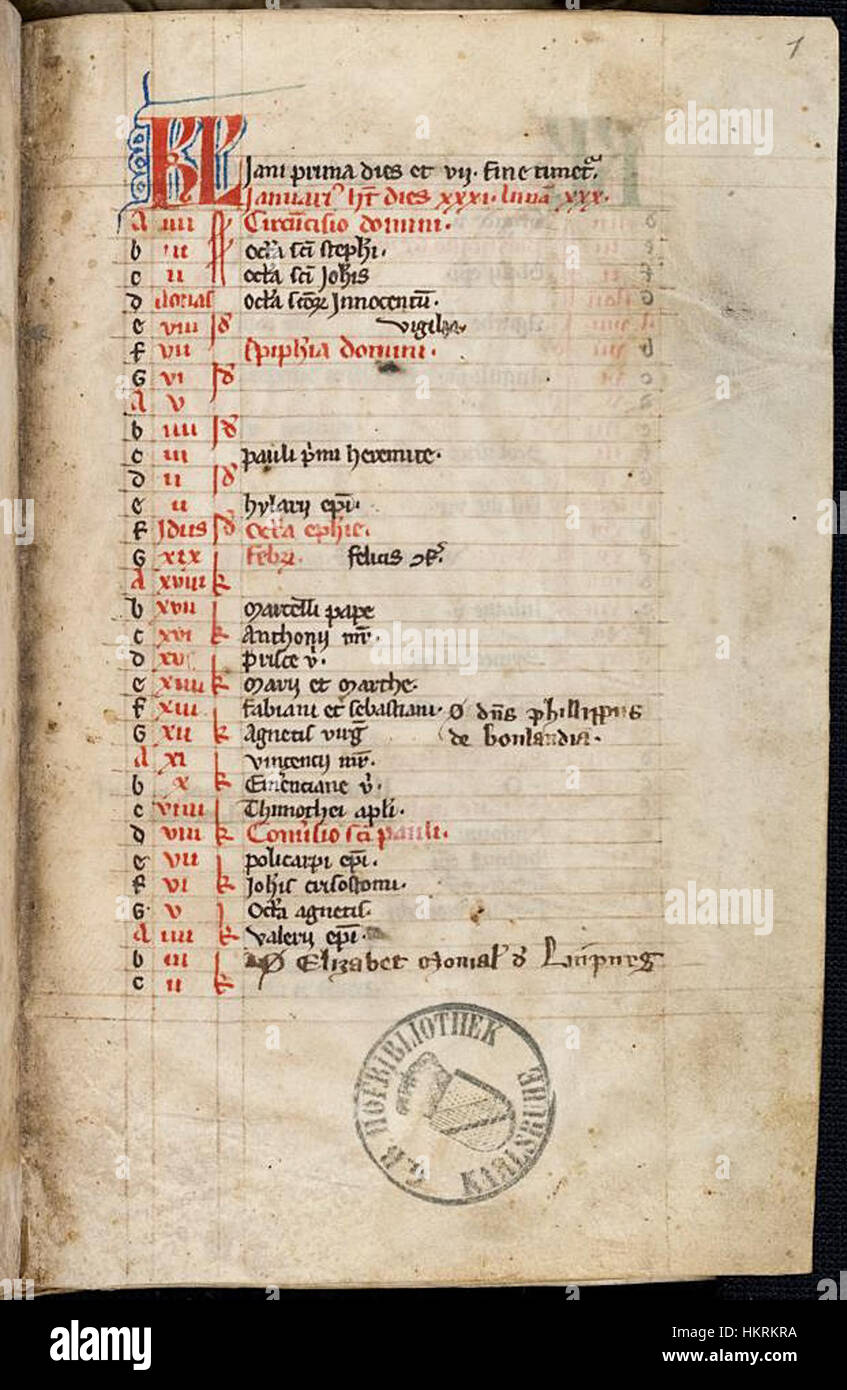 1
KL Jani prima dies et vij. fine timet᷑.
Januari⁹ ht̄ dies xxxi. luna xxx.
A iiii Circu̅cisio domini.
b iii octa sci stephi.
c ii octa sci Johis
d Nonas octa scoꝝ Innocentu̅.
e viii Jd vigilia
f vii Epiphia domini.
G vi Jd
A v
b iiii Jd
c iii pauli pimi heremite.
d ii Jd
e ii hylarij epi.
f Jdus Jd Octa ephie.
G xix febrꝫ. felicis
A xviii k
b xvii marcelli pape
c xvi k Anthonij mr̅.
d xv Prisce v̓.
e xiiii k marij et marthe.
f xiii fabiani et sebastiani. Ø dn̅s phillippus
G xii k Agnetis virg̅ de bonlandia.
A xi vincencij mr̅.
b x k Em̓enciane v̓.
c viiii Thimothei apli.
d viii k Conu̓sio sci pauli.
e vii policarpi epi.
f vi k Johis crisostomi.
G v Octa agnetis.
A iiii k valerij epi.
b iii Ø Elizabet monial̓ d̓
c ii k
G.B. HOFBIBLIOTHEK
KARLSRUHE
alamy
Image ID: HKRKRA
www.alamy.com